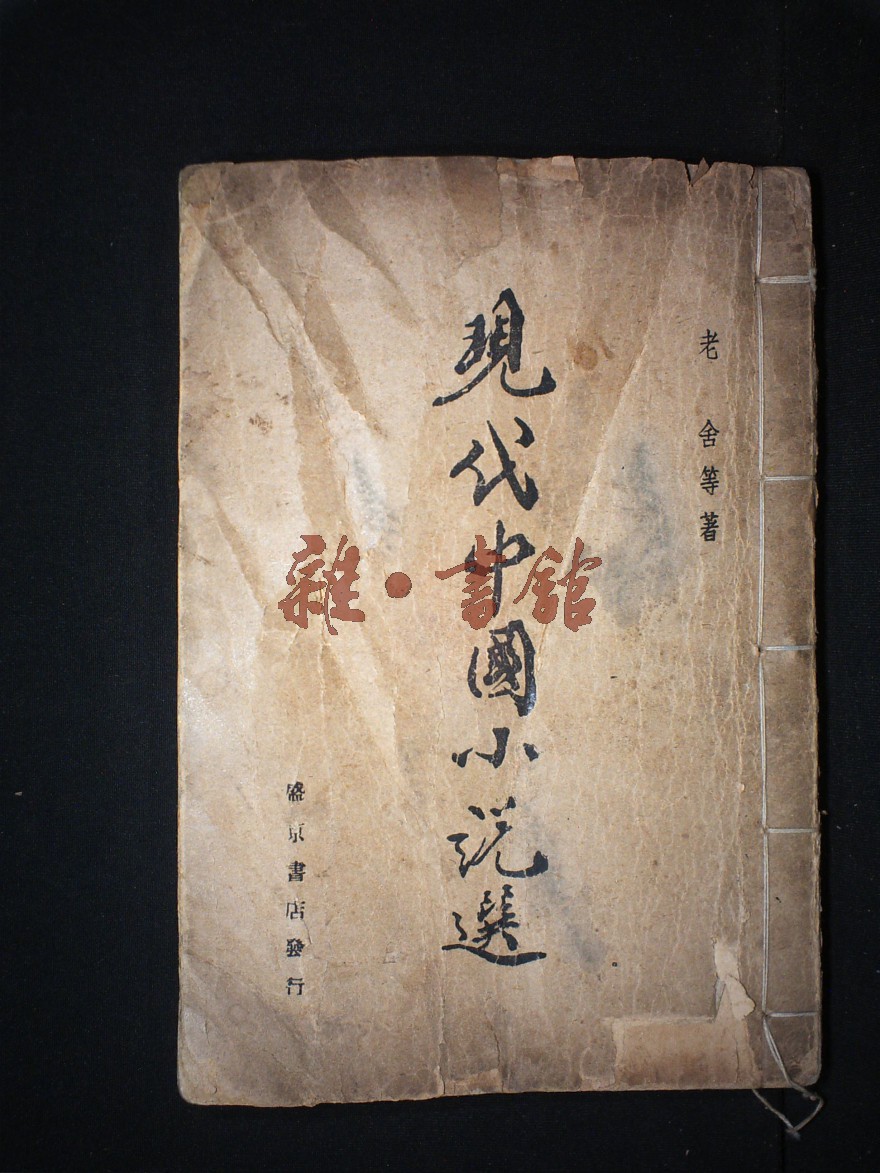 老舍等著
現代中國小説選
盛京書店發行
雜·書館